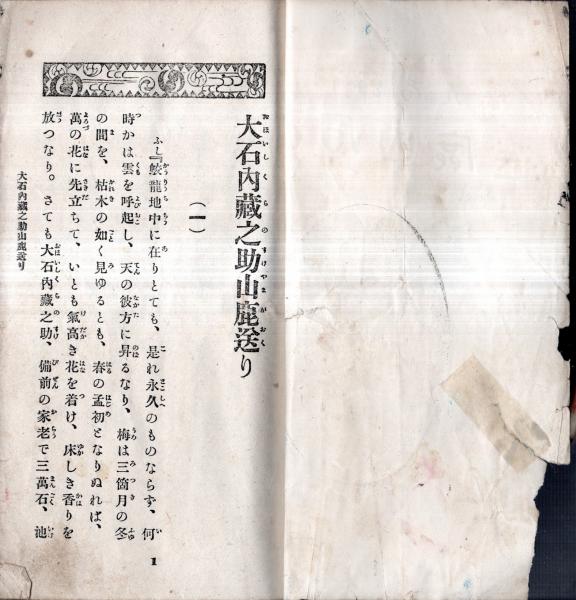 大石內藏之助山鹿送り
（一）
ふし『蛟龍地中に在りとても、是れ永久のものならず、何
時かは雲を呼起し、天の彼方に昇るなり、梅は三箇月の冬
の間を、枯木の如く見ゆるとも、春の孟初となりぬれば、
萬の花に先立ちて、いとも氣高き花を着け、床しき香りを
放つなり。さても大石內藏之助、備前の家老で三萬石、池
大石內藏之助山鹿送り
1